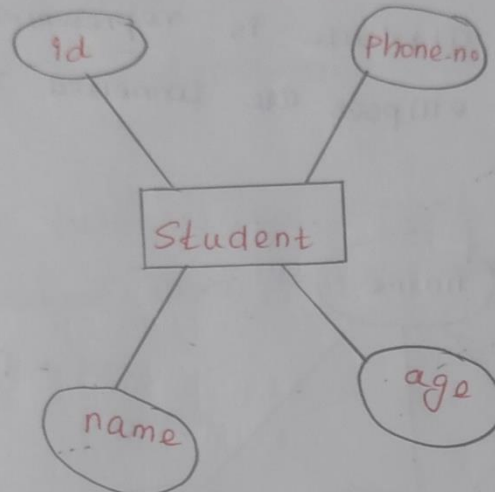 id
Phone-no
Student
name
age